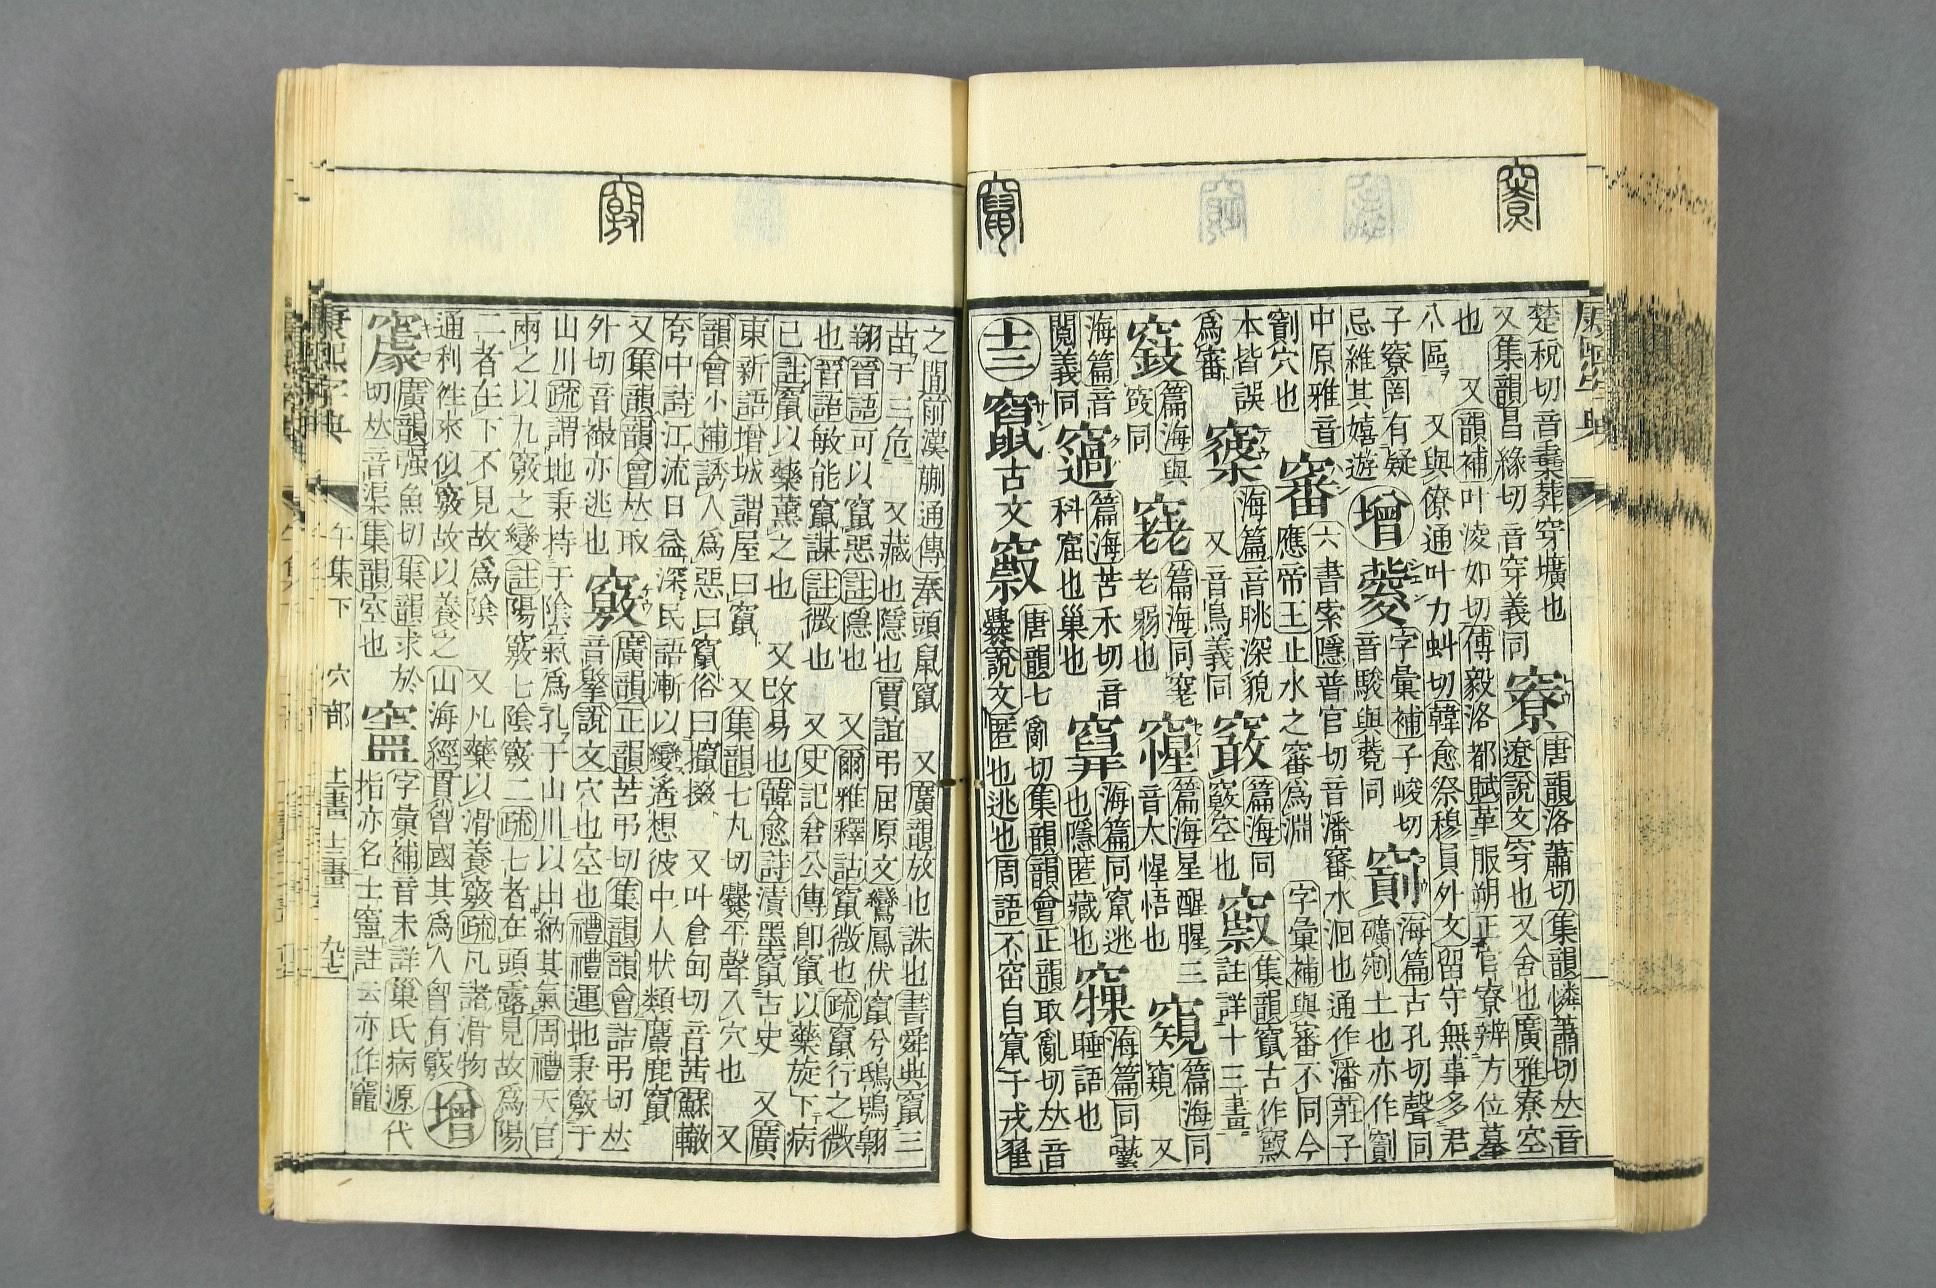 楚稅切音橐葬穿壙也
又集韻昌緣切音穿義同
寮
唐韻落蕭切集韻憐蕭切𠀤音
遼說文穿也又舍也廣雅寮空
也 又韻補叶凌如切傅毅洛都賦革服朔正官寮辨方位摹
八區 又與僚通叶力虯切韓愈祭穆員外文留守無事多君
子寮罔有疑
忌維其嬉遊
增
字彙補子峻切
音駿與䕙同
海篇古孔切聲同
礦剜土也亦作㔶
中原雅音
穴也
審
六書索隱普官切音潘審水洄也通作潘莊子
應帝王止水之審爲淵 字彙補與審不同今
本皆誤
爲審
海篇音眺深貌
又音鳥義同
篇海同
竅空也
集韻竄古作
註詳十三畫
篇海與
同
篇海同窀
老弱也
篇海星醒腥三
音太惺悟也
窺
篇海同
窺 又
海篇音
閱義同
窩
篇海苦禾切音
科窟也巢也
海篇同竄逃
也隱匿藏也
海篇同
睡語也
十三
竄
古文
唐韻七亂切集韻韻會正韻取亂切𠀤音
爨說文匿也逃也周語不窋自竄于戎翟
之閒前漢蒯通傳奉頭鼠竄 又廣韻放也誅也書舜典竄三
苗于三危 又藏也隱也賈誼弔屈原文鸞鳳伏竄兮鴟鴞翺
翔晉語可以竄惡註隱也 又爾雅釋詁竄微也疏竄行之微
也晉語敏能竄謀註微也 又史記倉公傳卽竄以藥旋下病
已註竄以藥薰之也 又改易也韓愈詩漬墨竄古史 又廣
東新語增城謂屋曰竄 又集韻七丸切爨平聲入穴也 又
韻會小補誘人爲惡曰竄俗曰攛掇 又叶倉旬切音茜蘇轍
夸中詩江流日益深民語漸以變遙想彼中人狀類麇鹿竄
又集韻韻會𠀤取
外切音襊亦逃也
竅
廣韻正韻苦弔切集韻韻會詰弔切𠀤
音擊說文穴也空也禮禮運地秉竅于
山川疏謂地秉持于陰氣爲孔于山川以出納其氣周禮天官
兩之以九竅之變註陽竅七陰竅二疏七者在頭露見故爲陽
二者在下不見故爲陰 又凡藥以滑養竅疏凡諸滑物
通利徃來似竅故以養之 山海經貫匈國其爲人匈有竅
增
廣韻强魚切集韻求於
切𠀤音渠集韻空也
字彙補音未詳巢氏病源代
指亦名士竈註云亦作竈
康熙字典
午集下
穴部
十二畫 十三畫
九七